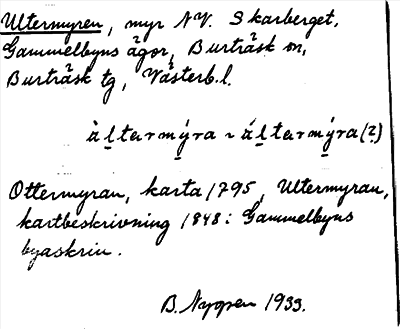 Ultermyren, myr NV. Skarberget,
Gammelbyns ägor, Burträsk sn,
Burträsk tg, Västerb. l.
àl̠tarmỳ̠ra ~ ál̠tarmý̠ra (?)
Ottermyran, karta 1795, Ultermyran,
kartbeskrivning 1848: Gammelbyns
byaskrin.
B. Nygren 1933.